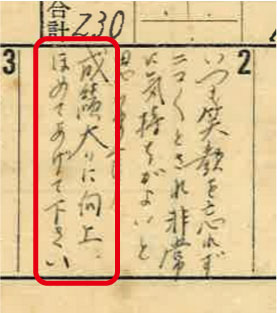 合計 230
2
いつも笑顔を忘れず
ニコ〱とされ非常
に気持ちがよいと
思
3
成績大いに向上、
ほめてあげて下さい